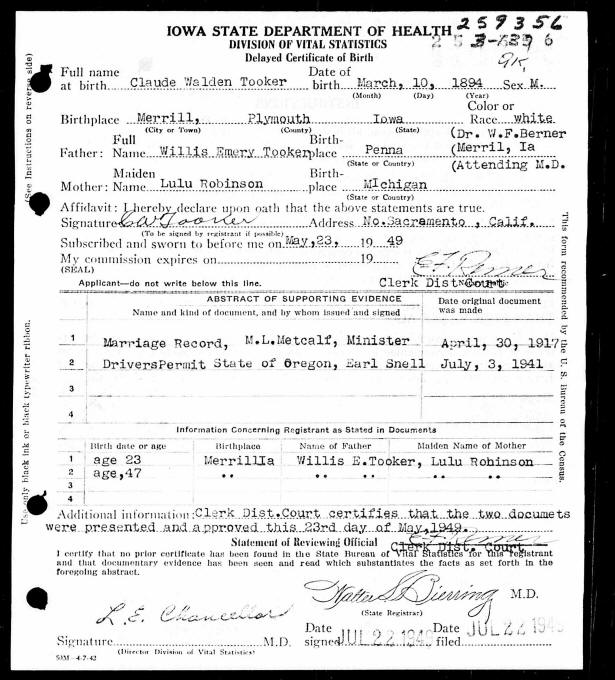 IOWA STATE DEPARTMENT OF HEALTH 259356
DIVISION OF VITAL STATISTICS
Delayed Certificate of Birth
Full name at birth Claude Walden Tooker Date of birth March, 10, 1894 Sex M.
(Month) (Day) (Year)
Birthplace Merrill, Plymouth Iowa Color or Race white
(City or Town) (County) (State)
(Dr. W.F.Berner
Father: Full Name Willis Emery Tooker Birthplace Penna (Merril, Ia
(State or Country) (Attending M.D.
Mother: Maiden Name Lulu Robinson Birthplace MIchigan
(State or Country)
Affidavit: I hereby declare upon oath that the above statements are true.
Signature CW Tooker Address No.Sacramento , Calif.
(To be signed by registrant if possible)
Subscribed and sworn to before me on May,23, 19 49
My commission expires on 19
(SEAL)
Clerk Dist.Court
Applicant—do not write below this line.
ABSTRACT OF SUPPORTING EVIDENCE Date original document was made
Name and kind of document, and by whom issued and signed
1 Marriage Record, M.L.Metcalf, Minister April, 30, 1917
2 DriversPermit State of Oregon, Earl Snell July, 3, 1941
3
4
Information Concerning Registrant as Stated in Documents
Birth date or age Birthplace Name of Father Maiden Name of Mother
1 age 23 MerrillIa Willis E.Tooker, Lulu Robinson
2 age,47 " " " " " "
3
4
Additional information: Clerk Dist.Court certifies that the two documets
were presented and approved this 23rd day of May,1949.
Statement of Reviewing Official Clerk Dist. Court
I certify that no prior certificate has been found in the State Bureau of Vital Statistics for this registrant
and that documentary evidence has been seen and read which substantiates the facts as set forth in the
foregoing abstract.
Walter L Bierring M.D.
(State Registrar)
L. E. Chancellor
Signature M.D. Date signed JUL 22 1949 Date filed JUL 22 1949
(Director Division of Vital Statistics)
50M—4-7-42
(See Instructions on reverse side)
Use only black ink or black typewriter ribbon.
This form recommended by the U. S. Bureau of the Census.